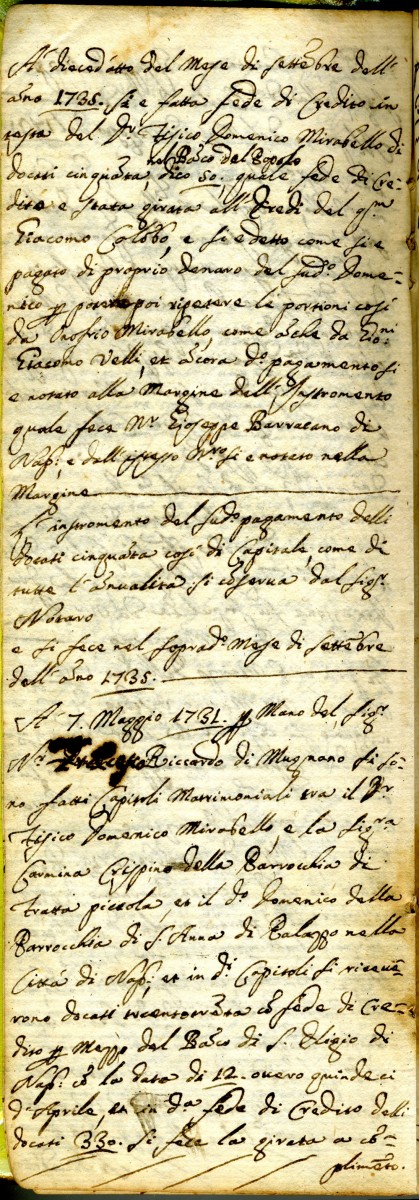 A' dieced'otto del Mese di settẽbre dell'
año 1735. si e fatta fede di Credito in
testa del Dr. Fisico Domenico Mirabello di
nel Bãco del Popolo
docati cinquãta, dico 50. quale fede di Cre=
dito e stata girata all'Eredi del qm.
Giacomo Colõbo, e si e detto come si e
pagato di proprio denaro del sudo. Dome=
nico p potere poi ripetere le portioni così
da Onofrio Mirabello, come ãche da Gio:
Giacomo Velli, et ãcora do. pagamento si
e notato alla Margine dell'Instromento
quale fece Nr. Gioseppe Barracano di
Nap: e dell'istesso Nro si e notato nella
Margine
L'instromento del sudo. pagamento delli
docati cinquãta così di Capitale, come di
tutte l'ãnualità si cõserva dal sigr.
Notaro
e si fece nel soprado. Mese di settẽbre
dell'año 1735.
A' 7. Maggio 1731. p Mano del sigr.
Nr. Riccardo di Mugnano si so=
no fatti Capitoli Matrimoniali tra il Dr.
Fisico Domenico Mirabello, e la sigra.
Carmina Crispino della Parrocchia di
Fratta piccola, et il do. Domenico della
Parrocchia di S. Anna di Palazzo nella
Città di Nap: et in di. Capitoli si ricevẽ=
rono docati trecentotrẽta cõ fede di Cre=
dito p Mezzo del Bãco di S. Eligio di
Nap: cõ la data di 12. overo quindeci
d'Aprile, et in da. fede di Credito delli
docati 330. si fece la girata a cõ=
plimẽto.